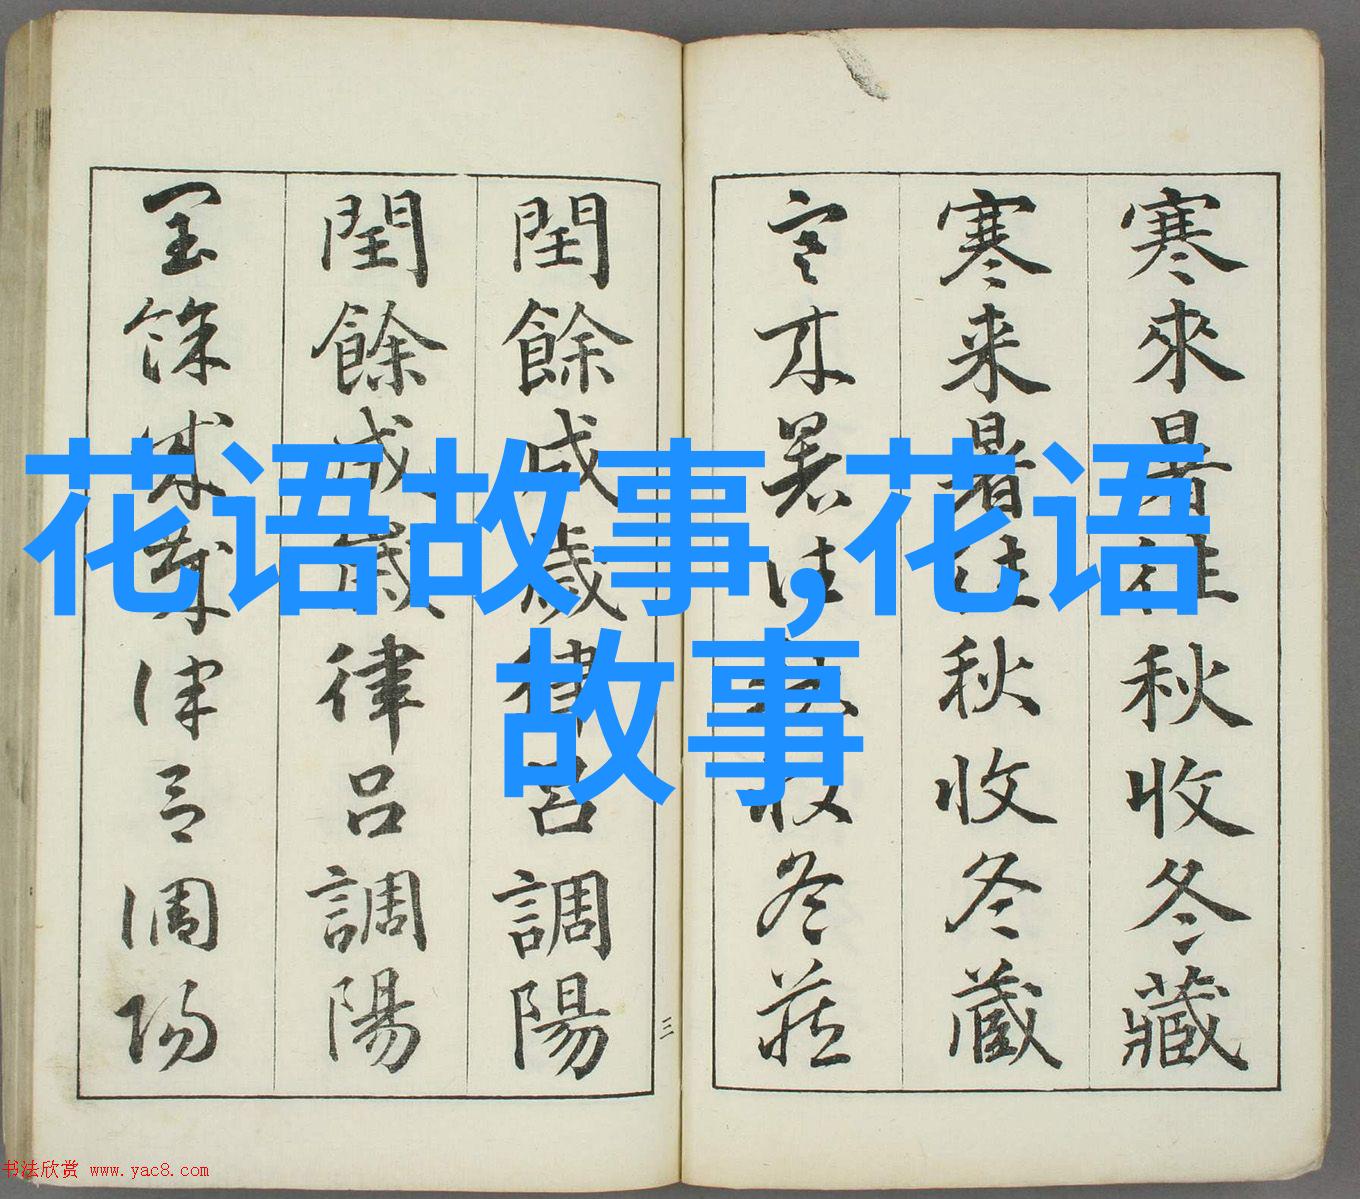 寒來暑往秋收冬藏
寒来暑往秋收冬蔵
寒来暑往秋收冬藏
閏餘成歲律呂調陽
閏餘成歲律呂調陽
閏餘成歲律呂調陽
三
花语故事,花语
故事
书法欣赏 www.yac8.com